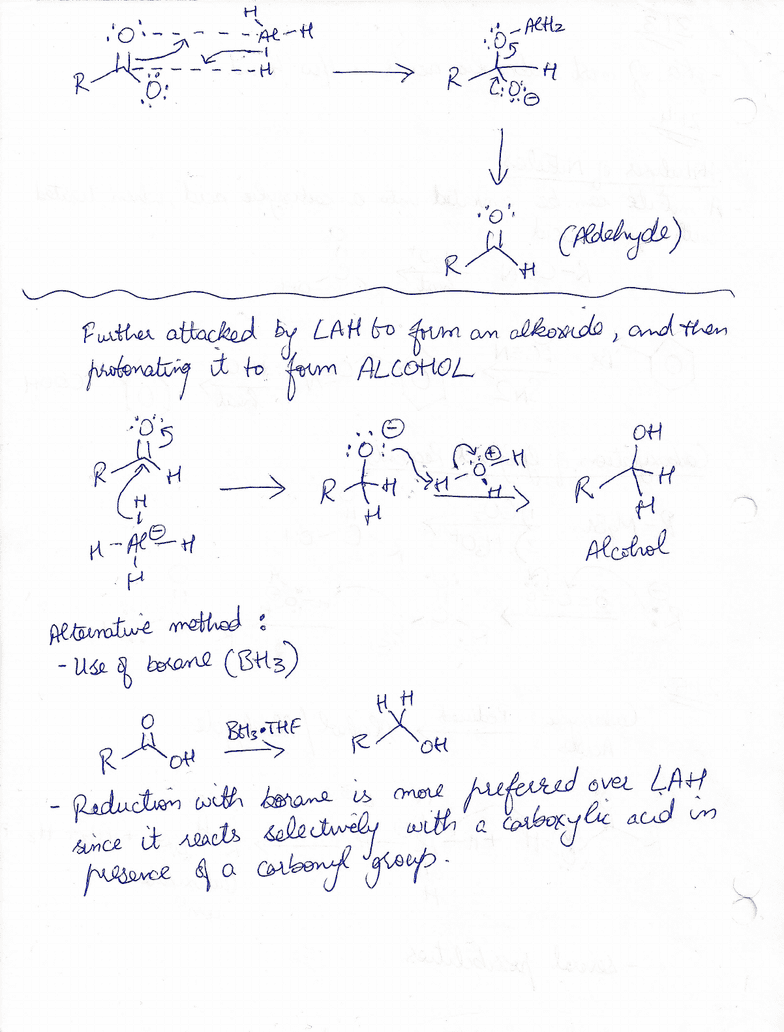 H
:O: Al-H
H
R :O:
:O-AlH2
R H
:O: ⊖
:O:
R H (Aldehyde)
Further attacked by LAH to form an alkoxide, and then
protonating it to form ALCOHOL
:O: ⊖ OH
R H :O: H-O⊕-H R H
H R H H H
H-Al⊖-H H Alcohol
H
Alternative method :
- Use of borane (BH3)
O H H
R OH BH3•THF R OH
- Reduction with borane is more preferred over LAH
since it reacts selectively with a carboxylic acid in
presence of a carbonyl group.